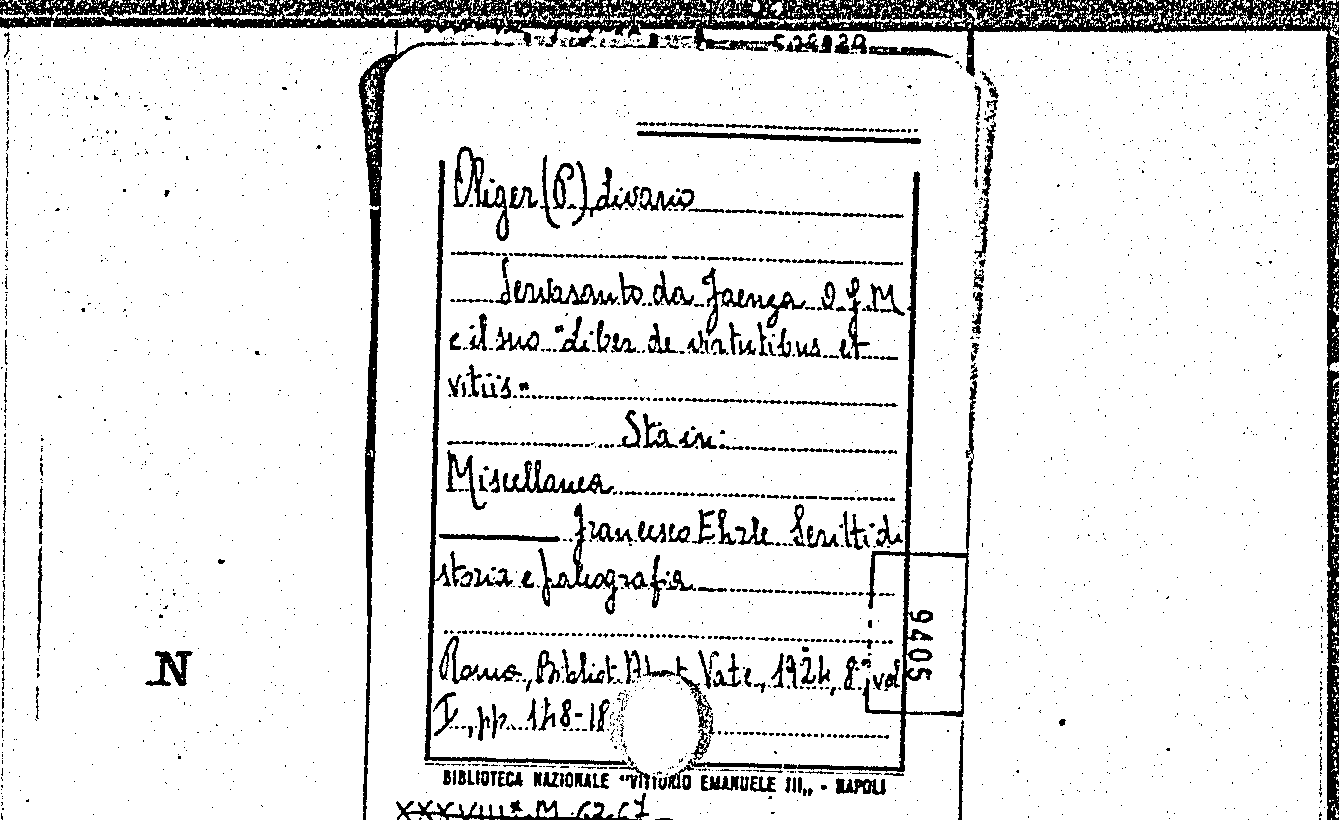 Oliger (P.) Livario
Servasanto da Faenza O.F.M.
e il suo "Liber de virtutibus et
vitiis"
Sta in:
Miscellanea
Francesco Ehrle Scritti di
storia e paleografia
Roma, Bibliot. Vate, 1924, 8º, vol
I, pp. 148-18
9405
N
BIBLIOTECA NAZIONALE "VITTORIO EMANUELE III„ - NAPOLI
XXXVIII* M 62-67